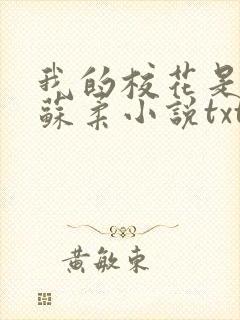 我的校花是
蘇柔小說txt
黃敏東